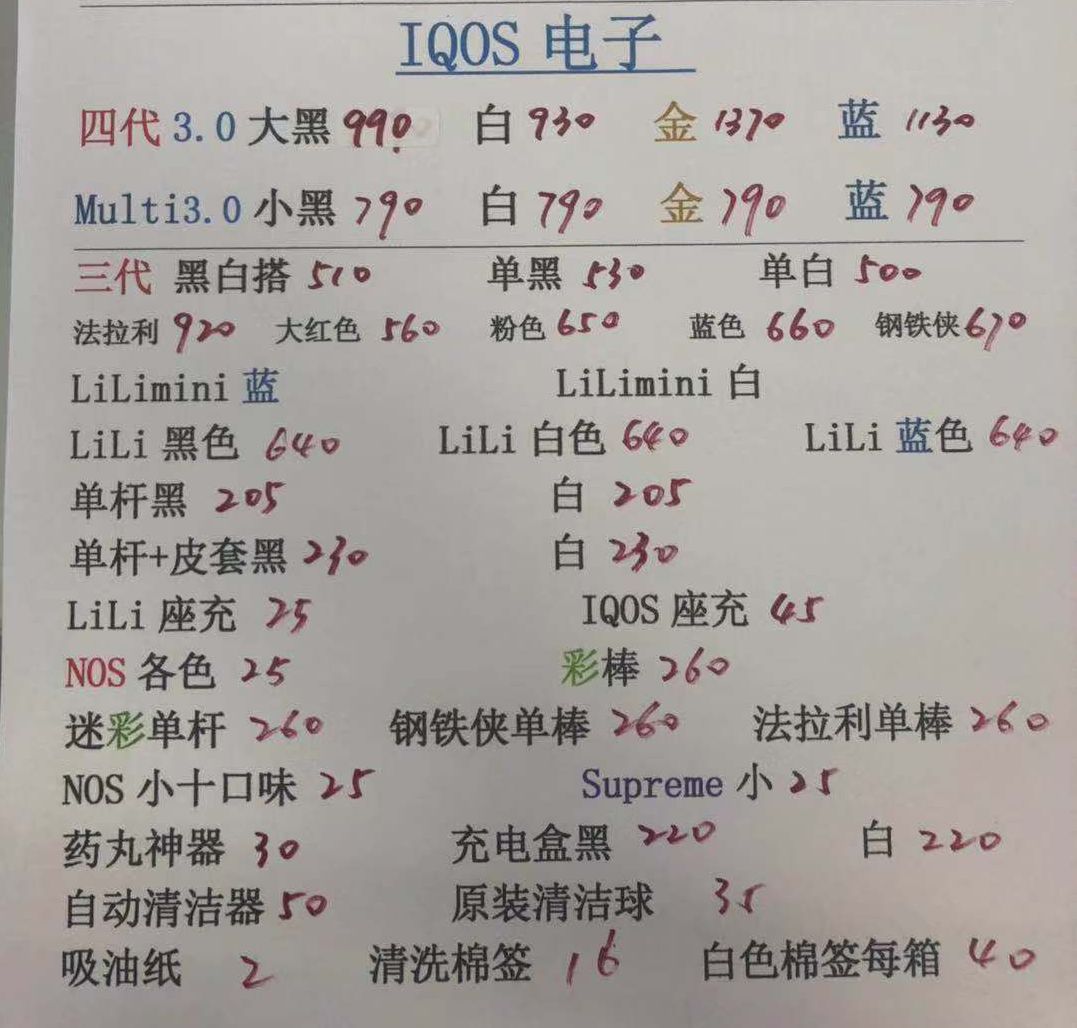 IQOS 电子
四代 3.0 大黑 990 白 930 金 1370 蓝 1130
Multi3.0 小黑 790 白 790 金 790 蓝 790
三代 黑白搭 510 单黑 530 单白 500
法拉利 920 大红色 560 粉色 650 蓝色 660 钢铁侠 670
LiLimini 蓝 LiLimini 白
LiLi 黑色 640 LiLi 白色 640 LiLi 蓝色 640
单杆黑 205 白 205
单杆+皮套黑 230 白 230
LiLi 座充 25 IQOS 座充 45
NOS 各色 25 彩棒 260
迷彩单杆 260 钢铁侠单棒 260 法拉利单棒 260
NOS 小十口味 25 Supreme 小 25
药丸神器 30 充电盒黑 220 白 220
自动清洁器 50 原装清洁球 35
吸油纸 2 清洗棉签 16 白色棉签每箱 40